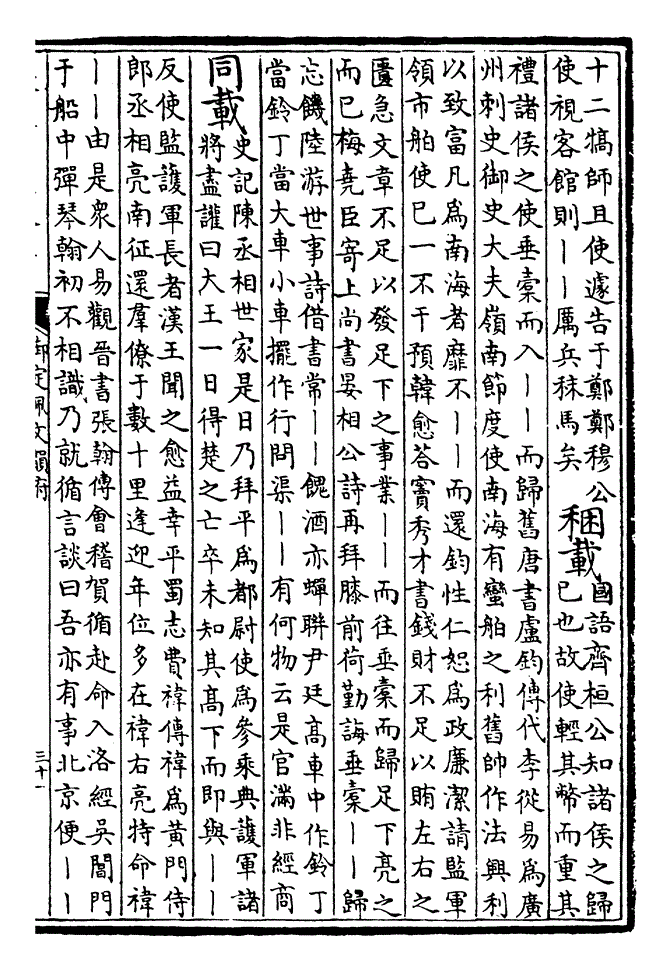 十二犒師且使遽告于鄭鄭穆公
使視客館則丨丨厲兵秣馬矣
稇載
國語齊桓公知諸侯之歸
已也故使輕其幣而重其
禮諸侯之使垂櫜而入丨丨而歸舊唐書盧鈞傳代李從易為廣
州刺史御史大夫嶺南節度使南海有蠻舶之利舊帥作法興利
以致富凡為南海者靡不丨丨而還鈞性仁恕為政廉潔請監軍
領市舶使已一不干預韓愈荅竇秀才書錢財不足以賄左右之
匱急文章不足以發足下之事業丨丨而往垂櫜而歸足下亮之
而已梅堯臣寄上尚書晏相公詩再拜膝前荷勤誨垂櫜丨丨歸
忘饑陸游世事詩借書常丨丨餽酒亦蟬聯尹廷高車中作鈴丁
當鈴丁當大車小車擺作行問渠丨丨有何物云是官滿非經商
同載
史記陳丞相世家是日乃拜平為都尉使為參乘典護軍諸
將盡讙曰大王一日得楚之亡卒未知其髙下而即與丨丨
反使監護軍長者漢王聞之愈益幸平蜀志費禕傳禕為黃門侍
郎丞相亮南征還羣僚于數十里逢迎年位多在禕右亮特命禕
丨丨由是衆人易觀晉書張翰傳會稽賀循赴命入洛經吳閶門
于船中彈琴翰初不相識乃就循言談曰吾亦有事北京便丨丨
御定佩文韻府
三十一